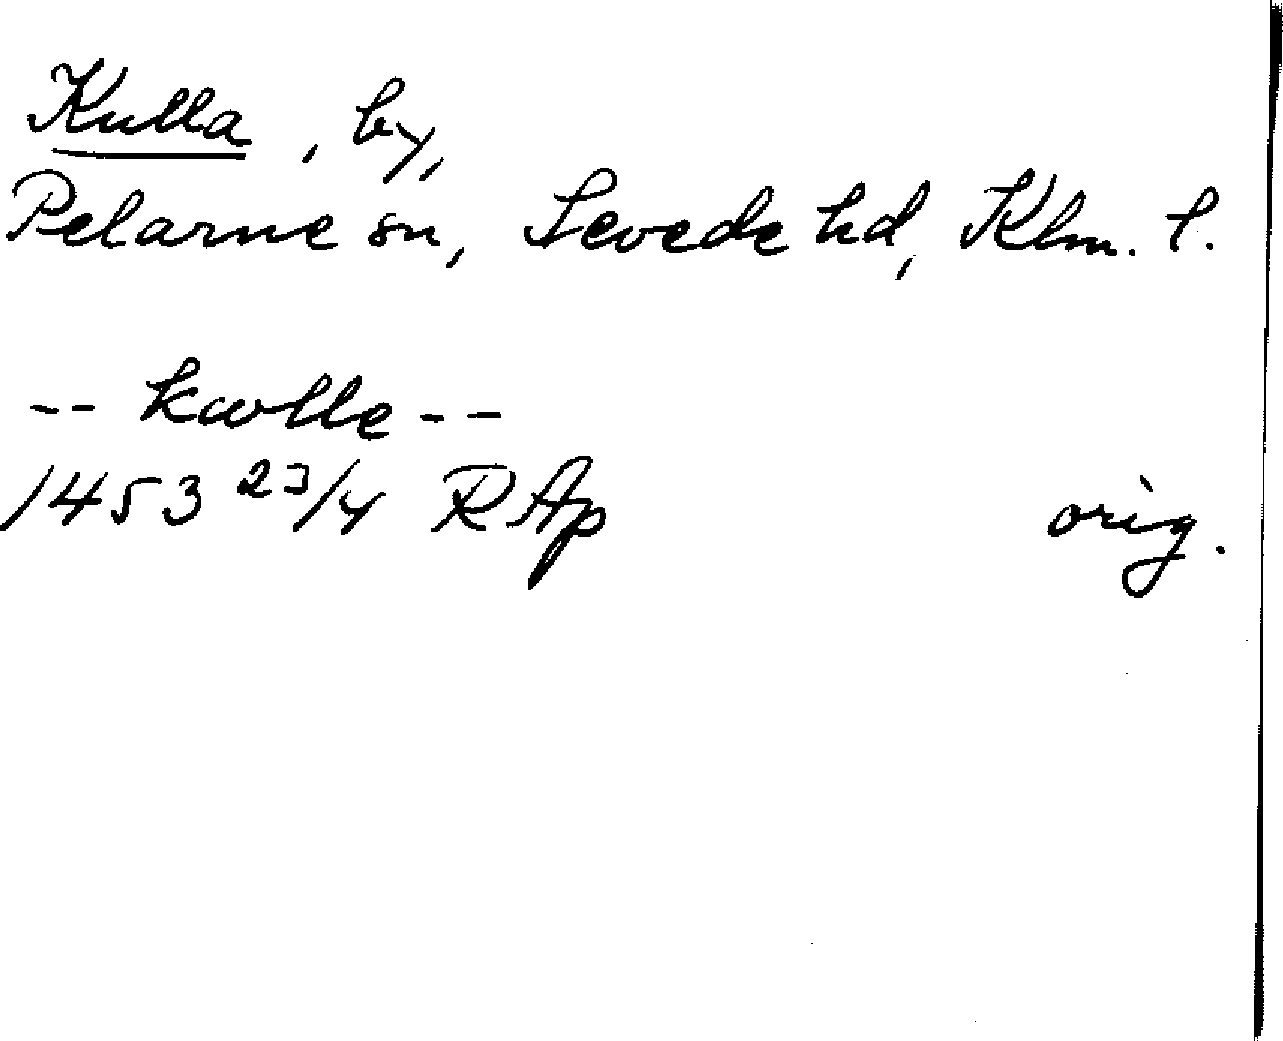 Kulla, by,
Pelarne sn, Sevede hd, Klm. l.
-- kwlle --
1453 23/4 RAp orig.